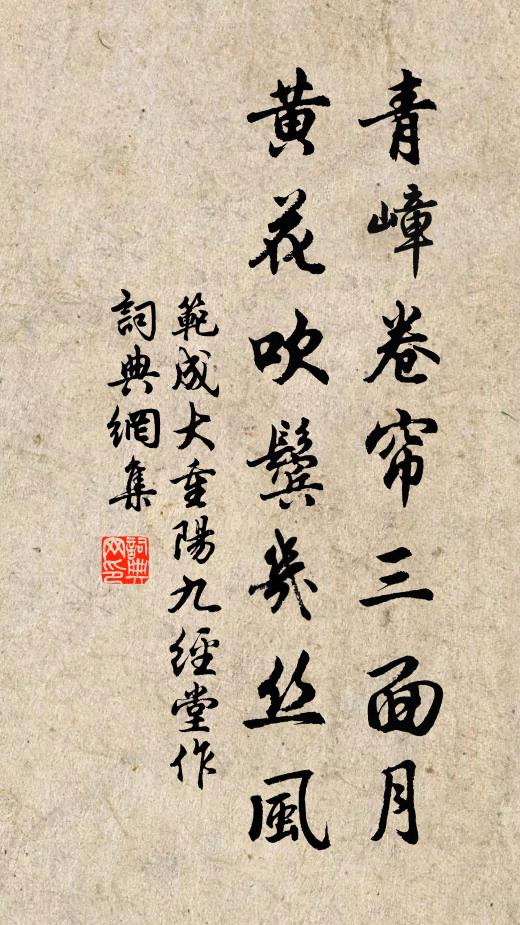 青嶂卷帘三面月
黄花吹鬓几丝風
範成大重陽九經堂作
詞典網集
詞典网印